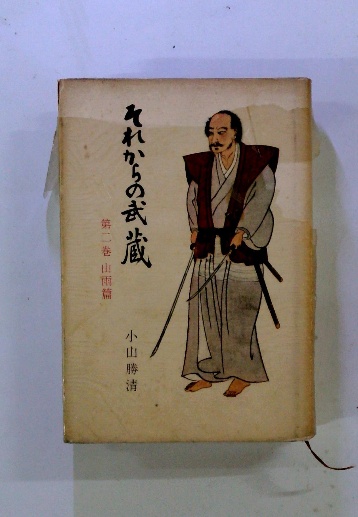 それからの武蔵
第二巻 山雨篇
小山勝清